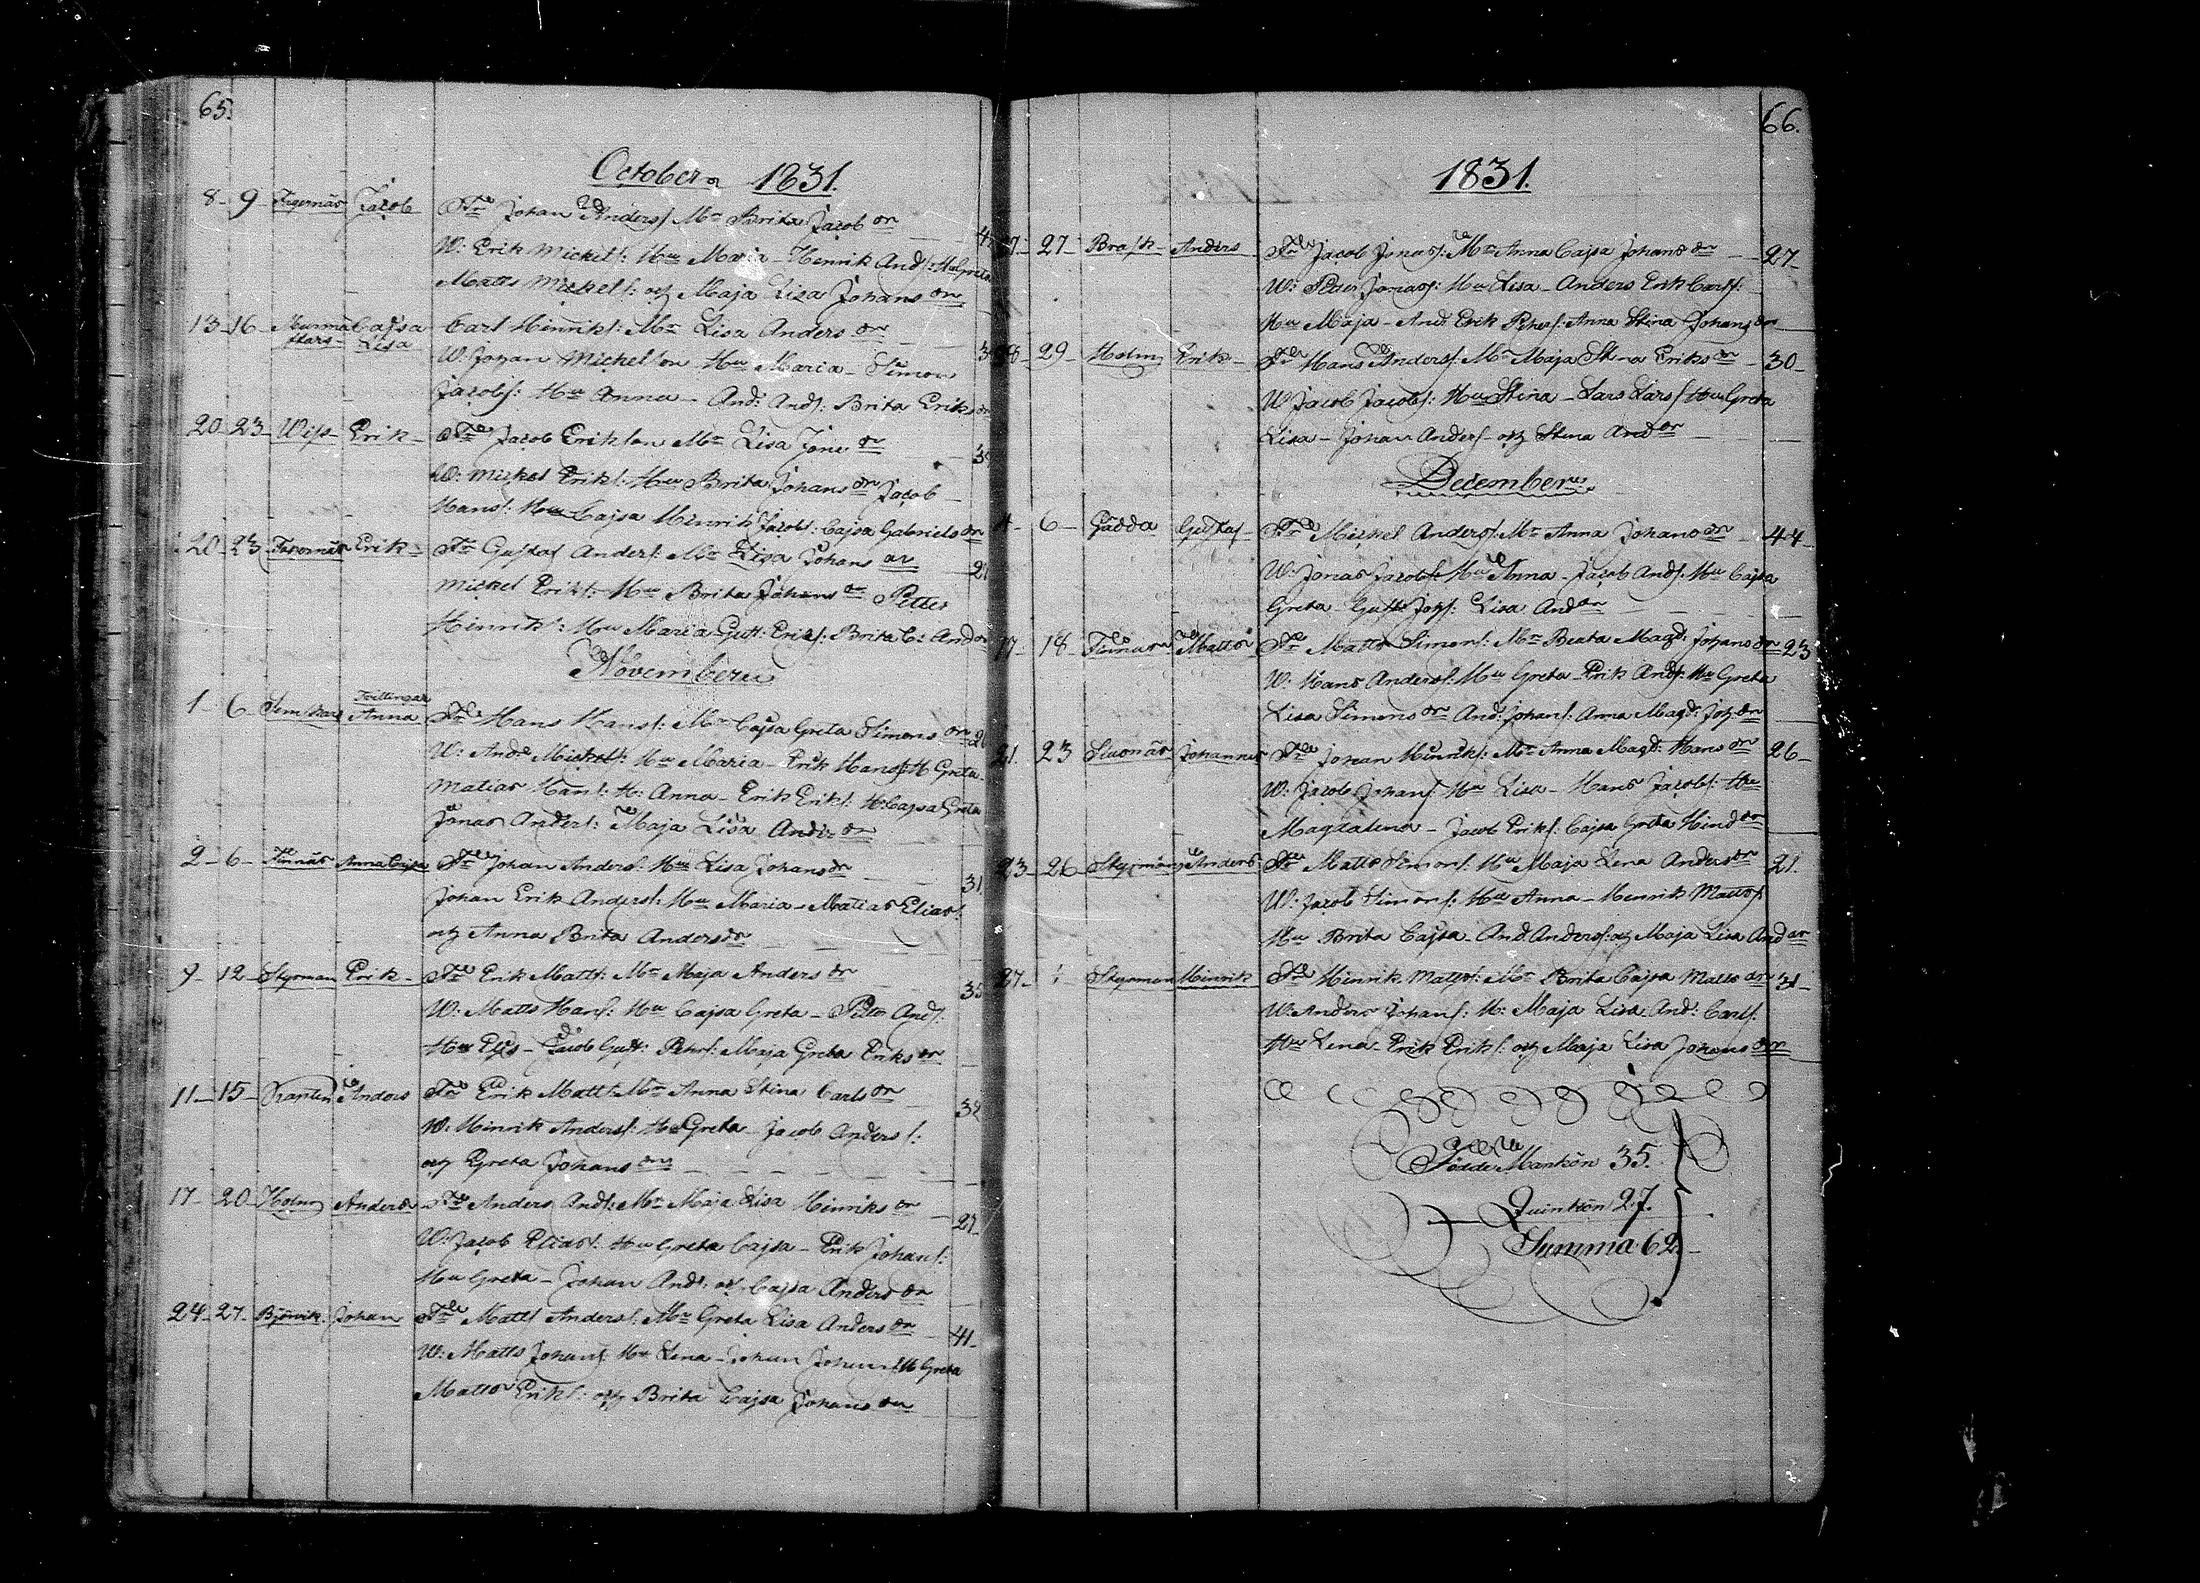 65.
October 1831.
8 - 9 Jacob Johan Anders: Mr Brita Jacob dr
W: Erik Mickels: Hu Maria - Henrik And: H Greta
Matts Mickels: och Maja Lisa Johans dr
13 - 16 Cajsa Lisa Carl Hinriks: Mr Lisa Anders dr
W. Johan Mickelson Hu Maria - Simon
Jacobs: Hu Anna - And: Ands: Brita Eriks dr
20 - 23 Erik Jacob Erikson Mr Lisa
W: Mickel Eriks: Hu Brita Johans dr Jacob
Hans: Hu Cajsa Hinrik Jacobs: Cajsa Gabriels dr
20 - 23 Erik Fr Gustaf Anders: Mr Lisa Johans dr
Mickel Eriks: Hu Brita Johans dr Petter
Hinriks: Hu Maria Gust: Eriks: Brita C: And dr
November
1 - 6 Tvillingar Anna Fr Hans Hans: Mr Cajsa Greta Simons dr
W: Andrs Mickels: Hu Maria - Erik Hans: H Greta
Matias Hans: H: Anna - Erik Eriks: H: Cajsa Greta
Jonas Anders: Maja Lisa Andr: dr
2 - 6 Finnäs Anna Cajsa Fr Johan Anders: Mr Lisa Johans dr 31
Johan Erik Anders: Hu Maria - Matias Elias:
och Anna Brita Anders dr
9 - 12 Styrman Erik Fr Erik Matts: Mr Maja Anders dr 35
W: Matts Hans: Hu Cajsa Greta - And:
Hu - Jacob Gust: Pehrs: Maja Greta Eriks dr
11 - 15 Anders Fr Erik Matts: Mr Anna Stina Carls dr 32
W: Hinrik Anders: H Greta - Jacob Anders:
och Greta Johans dr
17 - 20 Holm Anders Fr Anders And: Mr Maja Lisa Hinriks dr 27
W: Jacob Elias: Hu Greta Cajsa - Erik Johans:
Hu Greta - Johan Ands: och Cajsa Anders dr
24 - 27 Björvik Johan Fr Matts Anders: Mr Greta Lisa Anders dr 41
W: Matts Johans: Hu Lena - Johan Johans: H Greta
Matts Eriks: och Brita Cajsa Johans dr
66.
1831.
27 - 27 Brask Anders Fr Jacob Jonas: Mr Anna Cajsa Johans dr 27
W: Peter Jonas: Hu Lisa - Anders Erik Carls:
Hu Maja - And Erik Pehrs: Anna Stina Johans dr
28 - 29 Holm Erik Fr Hans Anders: Mr Maja Stina Eriks dr 30
W Jacob Jacobs: Hu Stina - Lars Lars: Hu Greta
Lisa - Johan Anders: och Stina And dr
December
4 - 6 Gädda Gustaf Fr Mickel Anders: Mr Anna Johans dr 44
W: Jonas Jacobs: Hu Anna - Jacob Ands: Hu Cajsa
Greta - Gust Lisa And dr
17 - 18 Matts Fr Matts Simons: Mr Beata Magd: Johans dr 23
W: Hans Anders: Hu Greta - Erik Ands: Hu Greta
Lisa Simons dr And: Johans: Anna Magd: Joh dr
21. 23 Johannes Fr Johan Hinriks: Mr Anna Magd: Hans dr 26
W: Jacob Johans: Hu Lisa - Hans Jacobs: Hu
Magdalena - Jacob Eriks: Cajsa Greta Hind dr
23 - 26 Anders Fr Matts Simons: Mr Maja Lena Anders dr 21.
W: Jacob Simons: Hu Anna - Henrik Matts:
Hu Brita Cajsa - And. Anders: och Maja Lisa And dr
27 Styrman Hinrik Fr Hinrik Matts: Mr Brita Cajsa Matts dr 31
W: Anders Johans: H: Maja Lisa And: Carls:
Hu Lena - Erik Eriks: och Maja Lisa Johans dr
Födde Mankön 35.
Quinkön 27.
Summa 62